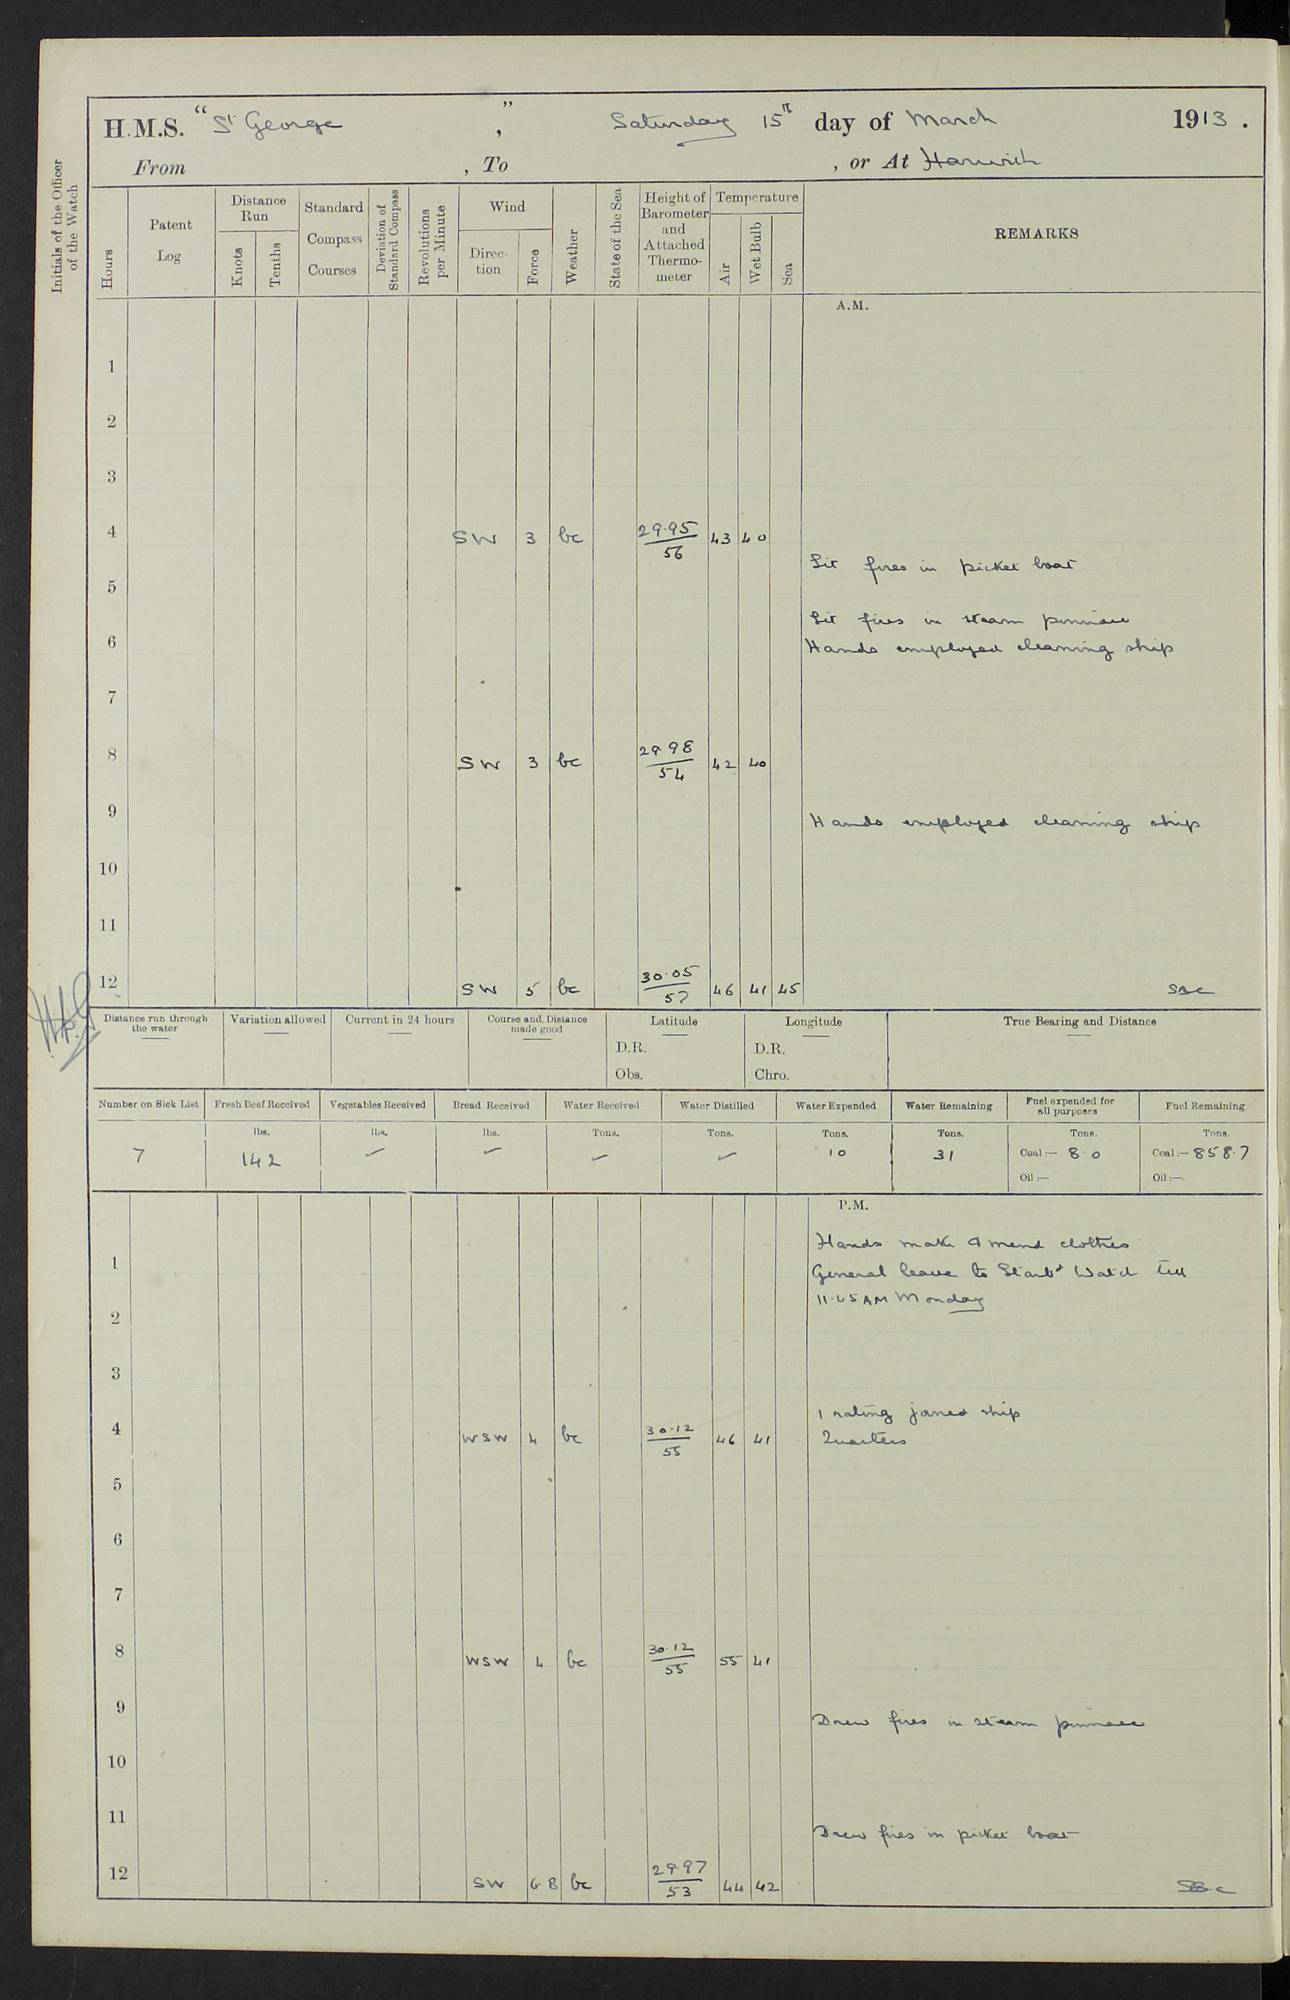 H.M.S. "St George", Saturday 15th day of March 1913.
From , To , or At Harwich
Initials of the Officer of the Watch
Hours
Patent Log
Distance Run
Knots
Tenths
Standard Compass Courses
Deviation of Standard Compass
Revolutions per Minute
Wind
Direction
Force
Weather
State of the Sea
Height of Barometer and Attached Thermometer
Temperature
Air
Wet Bulb
Sea
REMARKS
A.M.
1
2
3
4 SW 3 bc 29.95/56 43 40
Lit fires in picket boat
5
Lit fires in steam pinnace
6 Hands employed cleaning ship
7
8 SW 3 bc 29 98/54 42 40
9 Hands employed cleaning ship
10
11
12 SW 5 bc 30.05/57 46 41 45
Distance run through the water
Variation allowed
Current in 24 hours
Course and Distance made good
Latitude
D.R.
Obs.
Longitude
D.R.
Chro.
True Bearing and Distance
Number on Sick List Fresh Beef Received Vegetables Received Bread Received Water Received Water Distilled Water Expended Water Remaining Fuel expended for all purposes Fuel Remaining
lbs. lbs. lbs. Tons. Tons. Tons. Tons. Tons. Tons.
7 142 10 31 Coal:— 8.0 Coal:— 858.7
Oil:— Oil:—
P.M.
Hands make & mend clothes
1 General leave to Starbd Watch till
11.45 AM Monday
2
3
1 rating joined ship
4 WSW 4 bc 30.12/55 46 41 Quarters
5
6
7
8 WSW 4 bc 30.12/55 55 41
9 Drew fires in steam pinnace
10
11 Drew fires in picket boat
12 SW 6 8 bc 29 97/53 44 42